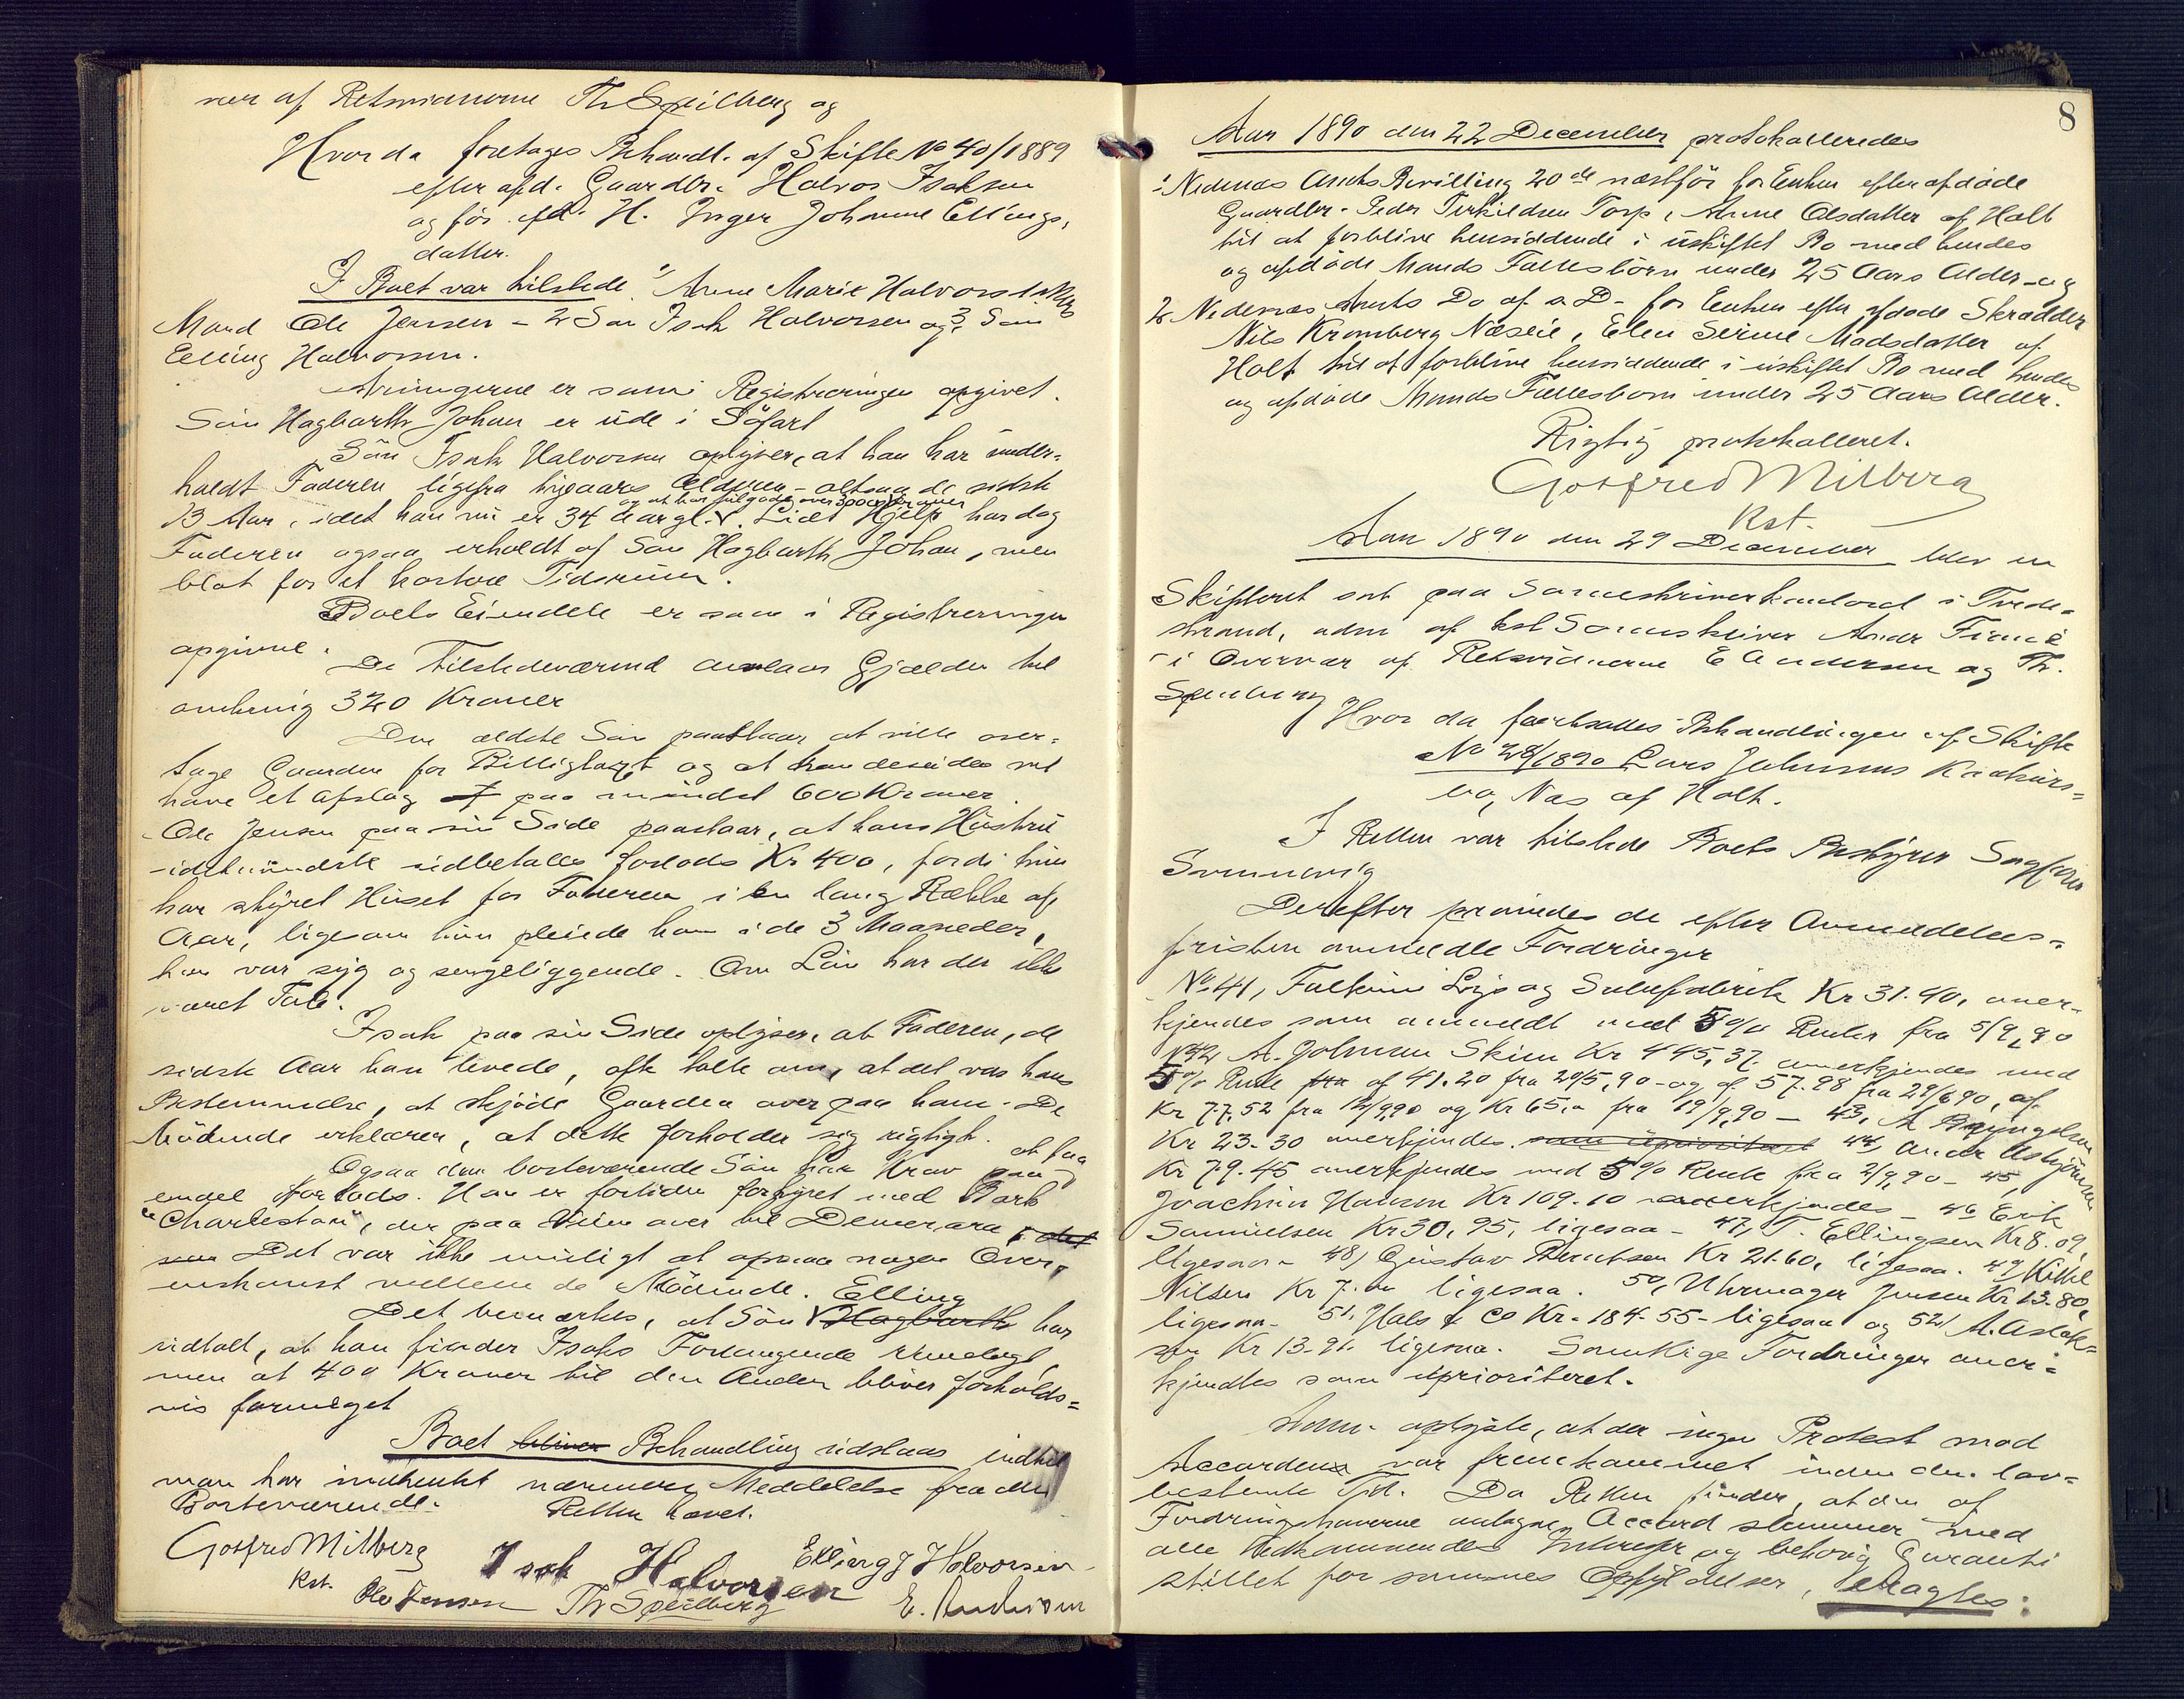 ner af Retsvidnerne Th Speilberg og
Hvor da foretages Behandl. af Skifte No 40/1889
efter afd. Gaardbr. Halvor Isaksen
og før afd. H. Inger Johanne Ellings-
datter.
I Boet var tilstede 1/ Anne Marie Halvorsd
Mand Ole Jensen - 2 Søn Isak Halvorsen og 3, Søn
Elling Halvorsen.
Arvingerne er som i Registreringen opgivet.
Søn Hagbarth Johan er ude i Søfart
Søn Isak Halvorsen oplyser, at han har under-
holdt Faderen ligefra tyveaars Alderen - altsaa de sidste
og at har over 3000 Kroner
13 Aar, idet han nu er 34 Aar gl. Lidt Hjelp har dog
Faderen ogsaa erholdt af Søn Hagbarth Johan, men
blot for et kortere Tidsrum.
Boets Eiendele er som i Registreringen
opgivne.
De Tilstedeværend anslaar Gjælden til
omkring 320 Kroner
Den ældste Søn paastaar at ville over-
tage Gaarden for Billigtaxt og at han desuden vil
have et Afslag af paa mindst 600 Kroner.
Ole Jensen paa sin Side paastaar, at hans Hustru
idetmindste udbetales forlods Kr 400, fordi hun
har styret Huset for Faderen i en lang Række af
Aar, ligesom hun pleiede ham i de 3 Maaneder,
han var syg og sengeliggende. Om Løn har der ikke
været Tale.
Isak paa sin Side oplyser, at Faderen, de
sidste Aar han levede, ofte talte om, at det var hans
Bestemmelse, at skjøde Gaarden over paa ham. De
Mødende erklærer, at dette forholder sig rigtigt.
at faa
Ogsaa den borteværende Søn har Krav paa
endel forlods. Han er fortiden forhyret med Bark
"Charleston", der paa Veien over til Demerara i det
Det var ikke muligt at opnaa nogen Over-
enskomst mellem de Mødende. Elling
Det bemærkes, at Søn Hagbarth har
udtalt, at han finder Isaks Forlangende rimeligt,
men at 400 Kroner til den Anden bliver forholds-
vis formeget
Boet bliver Behandling udstaaes indtil
man har indhentet nærmere Meddelelse fra den
Borteværende.
Retten hævet.
Gotfred Milberg
Kst.
Isak Halvorsen
Elling J Halvorsen
Ole Jensen
Th Speilberg
E. Andersen
8
Aar 1890 den 22 December protokolleredes
1. Nedenæs Amts Bevilling 20de næstfør for Enken efter afdøde
Gaardbr. Peder Terkildsen Torp, Anne Olsdatter af Holt
til at forblive hensiddende i uskiftet Bo med hendes
og afdøde Mands Fællesbørn under 25 Aars Alder - og
2. Nedenæs Amts Do af s. D. for Enken efter afdøde Skrædder
Nils Kromberg Næseie, Elen Serine Madsdatter af
Holt til at forblive hensiddende i uskiftet Bo med hendes
og afdøde Mands Fællesbørn under 25 Aars Alder.
Rigtig protokolleret.
Gotfred Milberg
Kst.
Aar 1890 den 29 December blev en
Skifteret sat paa Sorenskriverkontoret i Tvede-
strand, adm af kst Sorenskriver
i Overvær af Retsvidnerne E Andersen og Th.
Speilberg
Hvor da fortsattes Behandlingen af Skifte
No 28/1890 Lars Johnsens Konkurs-
bo, Næs af Holt.
I Retten var tilstede Boets Bestyrer Sagfører
Derefter prøvedes de efter Anmeldelses-
fristen anmeldte Fordringer
No. 41, Falkum Lys og Sæbefabrik Kr 31.40, aner-
kjendes som anmeldt med 5 % Renter fra 5/9,90
No 42 A. Skien Kr 445,37 anerkjendes med
5% Rente fra af 41.20 fra 20/5,90 - og af 57.98 fra 29/6 90, af
Kr 77,52 fra 12/9,90 og Kr 65, fra 19/9,90 - 43, A
Kr 23.30 anerkjendes som uprioriteret 44, Andr Asbjørnsen
Kr 79.45 anerkjendes med 5% Rente fra 2/9,90 - 45,
Joachim Hansen Kr 109.10 anerkjendes - 46 Erik
Samuelsen Kr 30,95, ligesaa - 47, T. Ellingsen Kr 8.09,
ligesaa - 48, Gustav Berntsen Kr 21.60, ligesaa. 49, Kittel
Nilsen Kr 7. ligesaa. 50, Uhrmager Jensen Kr 13.80,
ligesaa - 51, Hals & Co Kr. 184-55 - ligesaa og 52, A. Aslak-
sen Kr 13.91. ligesaa. Samtlige Fordringer aner-
kjendtes som uprioriteret.
Adm. oplyste, at der ingen Protest mod
Accorden var fremkommet inden den lov-
bestemte Tid. Da Retten finder, at den af
Fordringshaverne antagne Accord stemmer med
alle Vedkommendes Interesser og behørig Garanti
stillet for sammes Opfyldelse, eragtes: